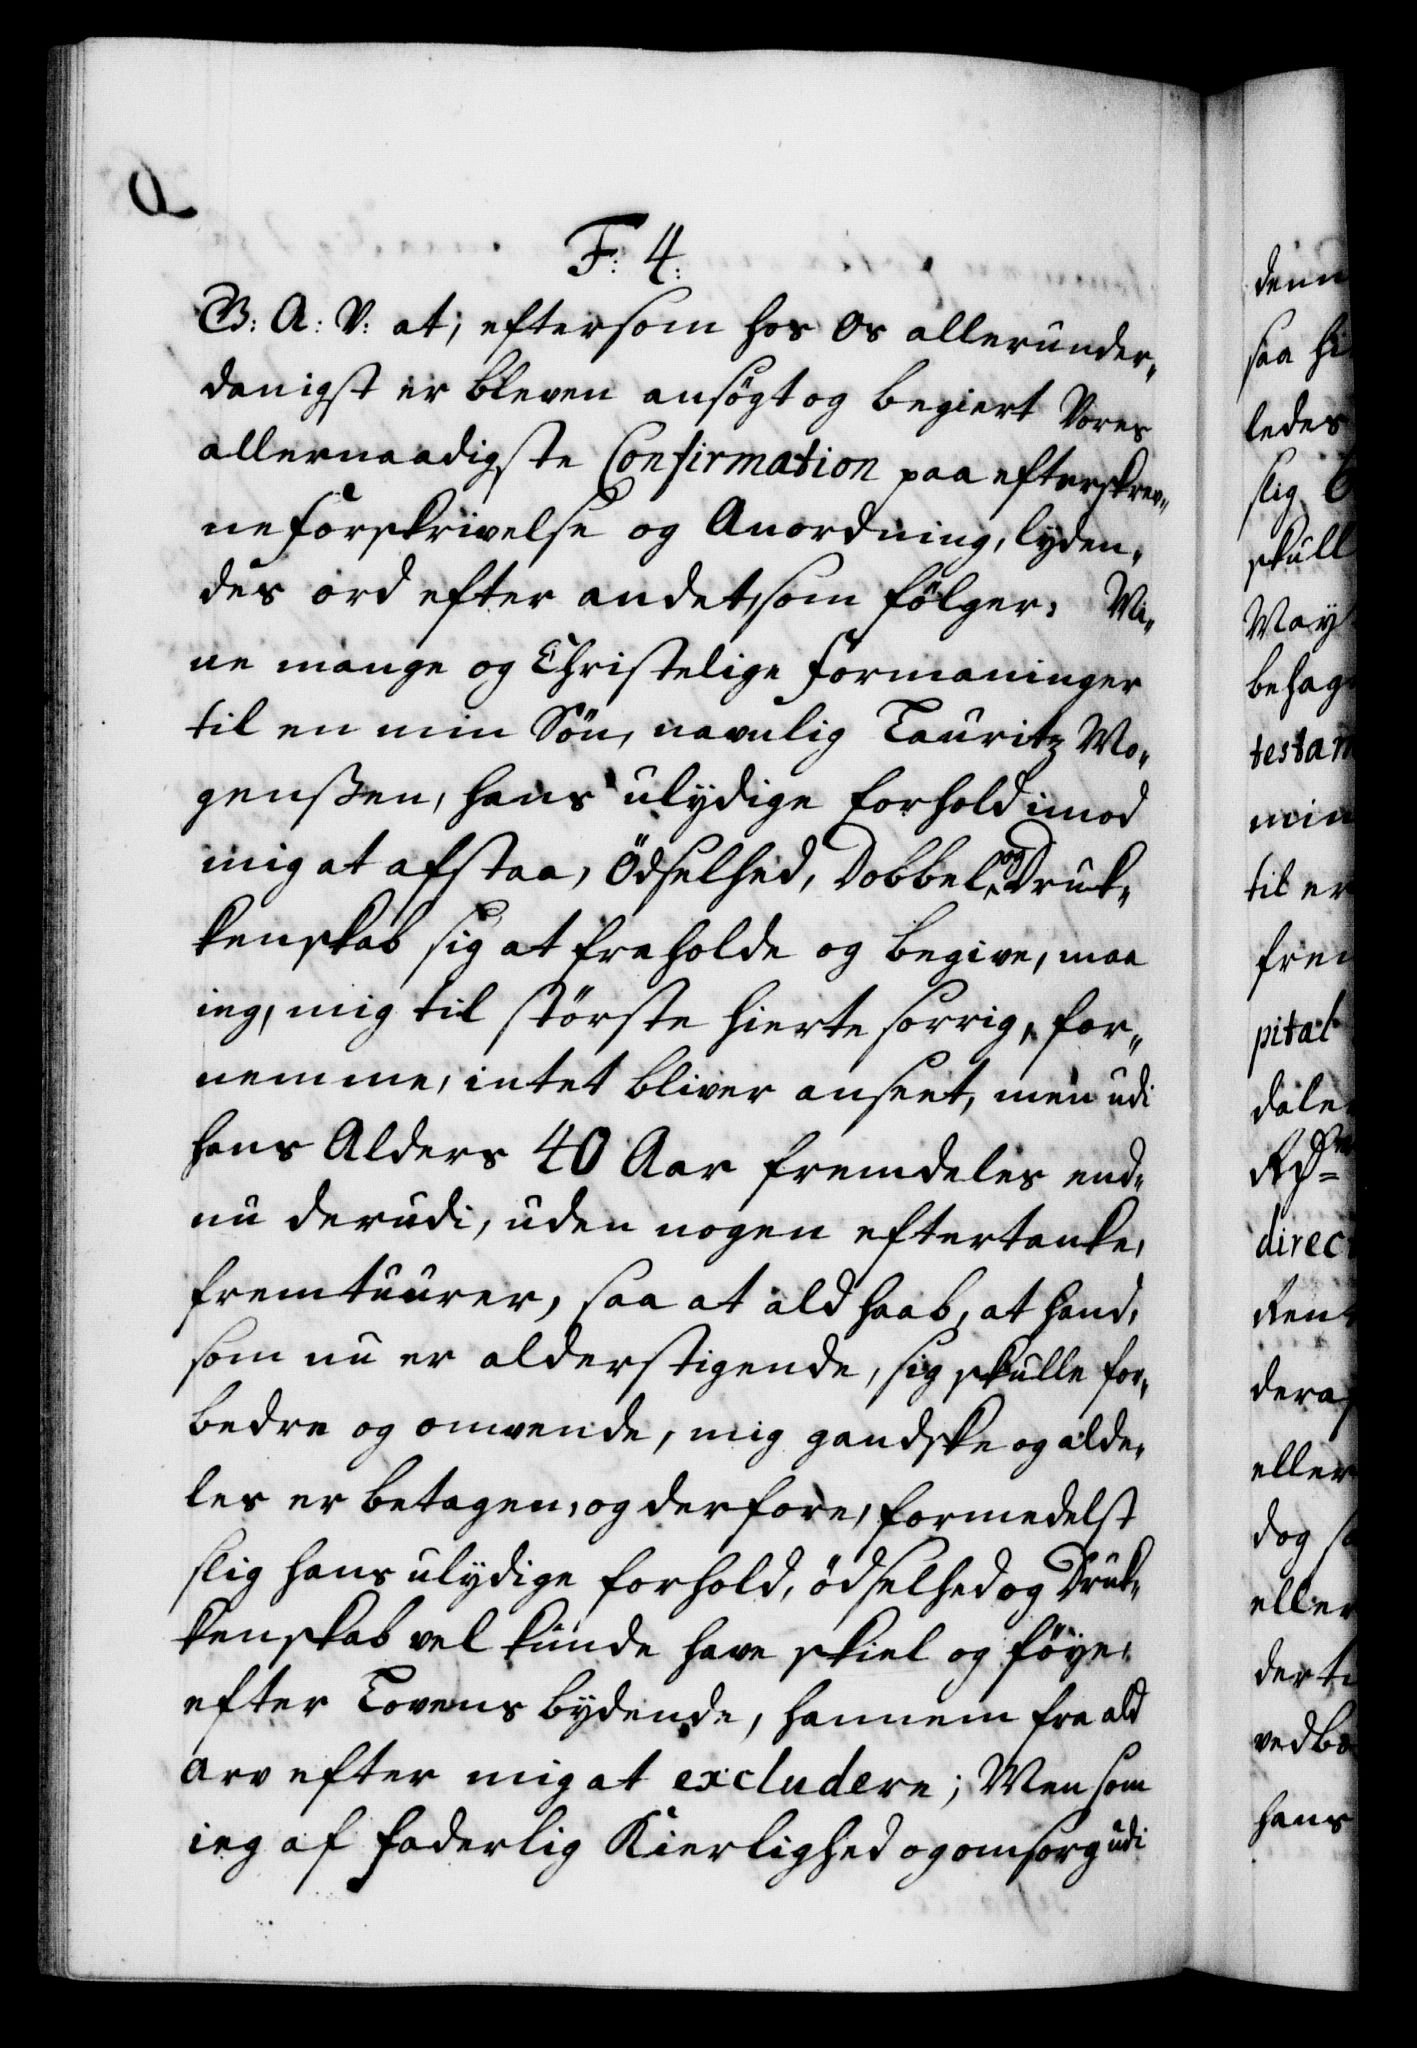 F: 4.
G: A: V: at, eftersom hos os allerunder„
danigst er bleven ansögt og begiert Vores
allernaadigste Confirmation paa efterskrev„
ne forskrivelse og Anordning, lyden„
des ord efter andet, som fölger: Mi„
ne mange og Christelige formaninger
til en min Sön, navnlig Lauritz Mo„
genssen, hans ulydige forhold imod
mig at afstaa, Ödselhed, Dobbel og Druk„
kenskab sig at fraholde og begive, maa
ieg, mig til störste hierte sorrig, for„
nemme, intet bliver anseet, men udi
hans Alders 40 Aar fremdeles end„
nu derudi, uden nogen eftertanke,
fremtuurer, saa at ald haab, at hand,
som nu er alderstigende, sig skulle for„
bedre og omvende, mig gandske og alde„
les er betagen, og derfore, formedelst
slig hans ulydige forhold, ödselhed og Druk„
kenskab vel kunde have skiel og föye,
efter Lovens bydende, hannem fra ald
arv efter mig at excludere; Men som
ieg af faderlig Kierlighed og omsorg udi
denn
saa hi
ledes
slig
skull
May
behag
testam
min
til er
frem
pital
daler
direc
Rent
deraf
eller
dog sa
eller
derti
vedbe
hans